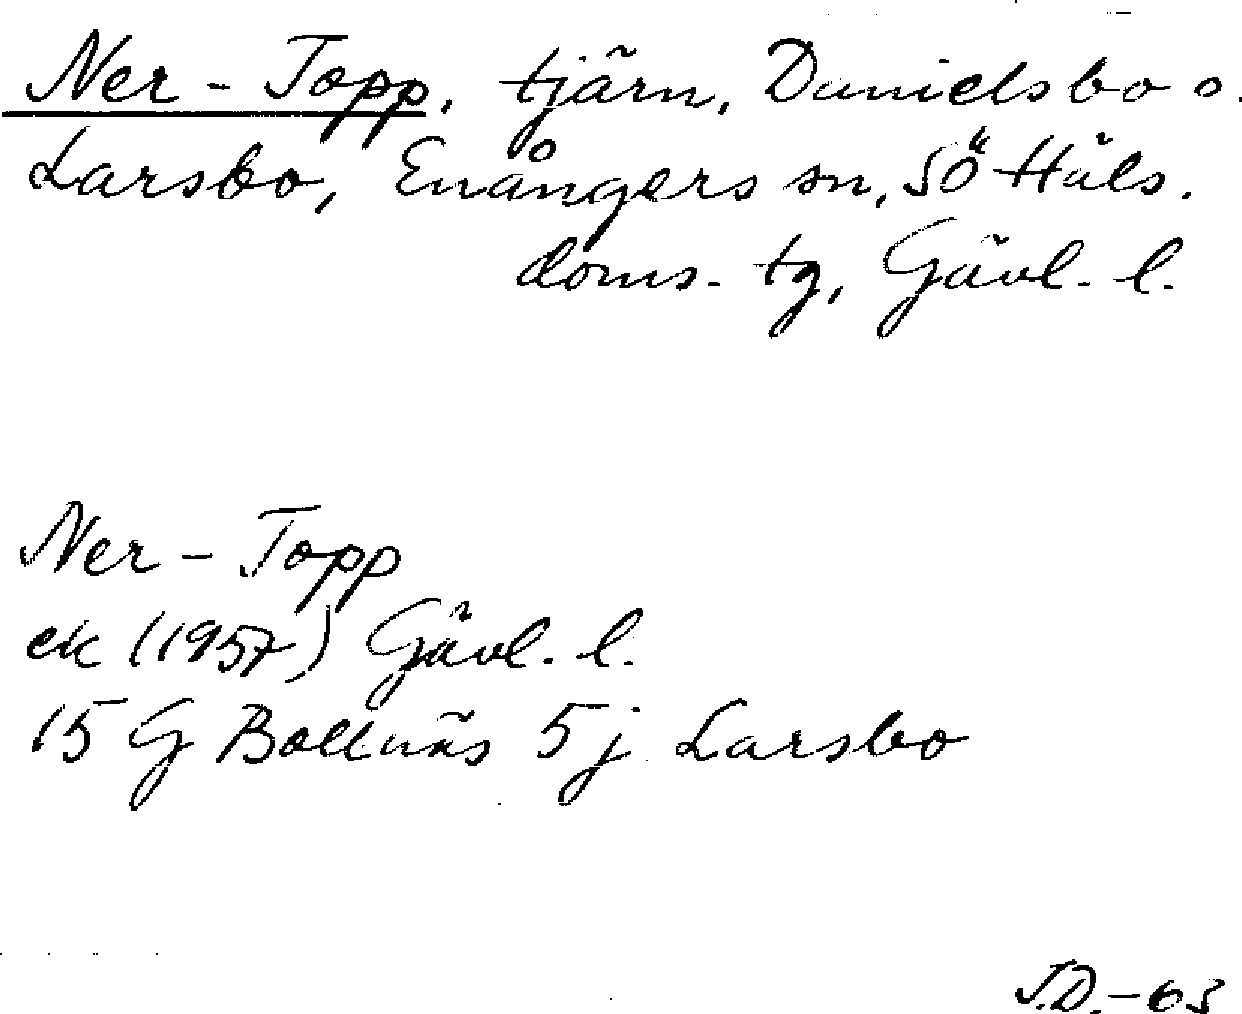 Ner-Topp, tjärn, Danielsbo o.
Larsbo, Enångers sn, SöHäls.
doms. tg, Gävl. l.
Ner-Topp
ek (1957) Gävl. l.
15 G Bollnäs 5j Larsbo
J.D.-63